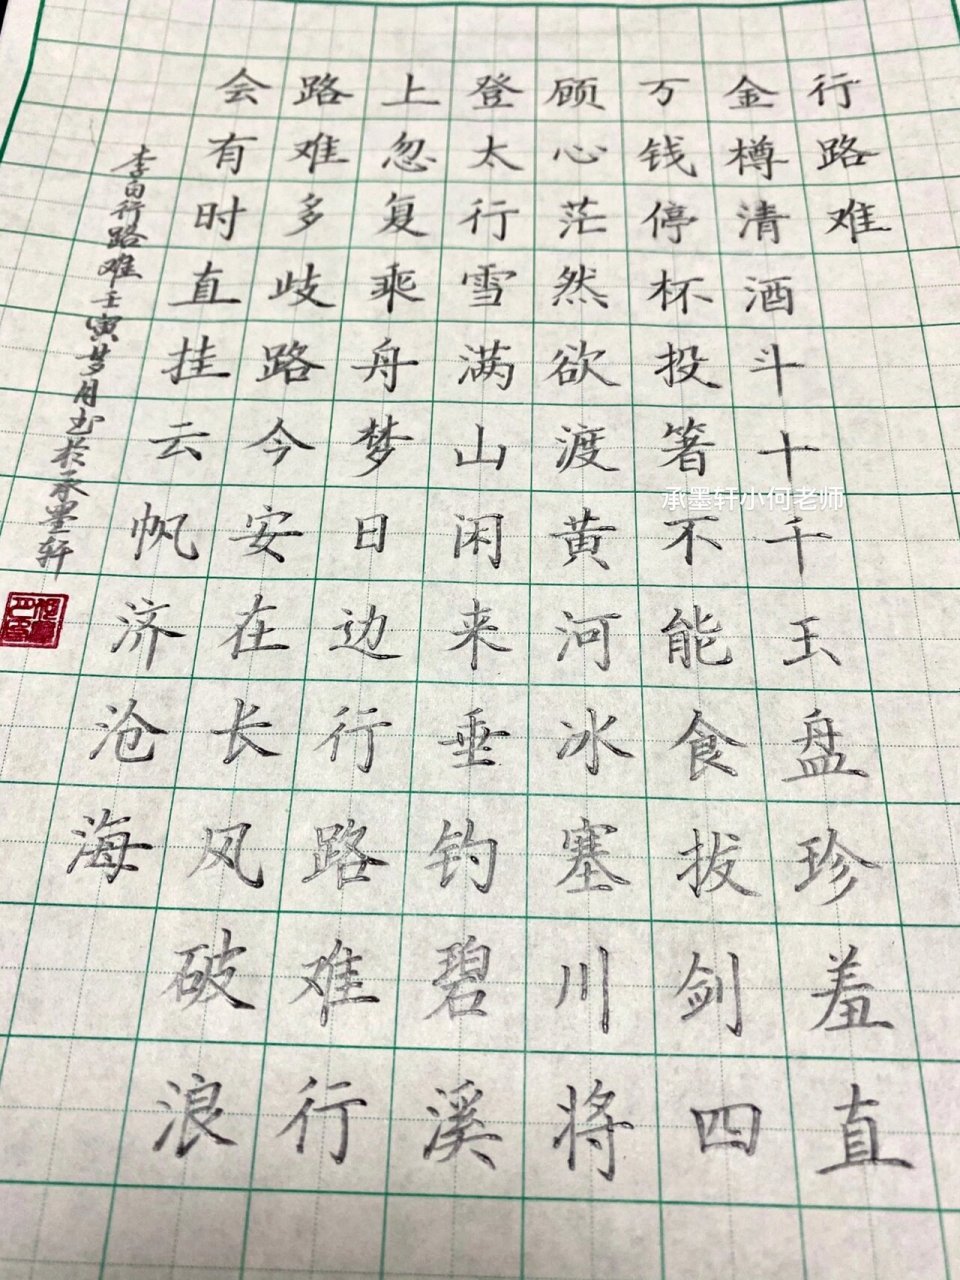 行路难
金樽清酒斗十千玉盘珍羞直
万钱停杯投箸不能食拔剑四
顾心茫然欲渡黄河冰塞川将
登太行雪满山闲来垂钓碧溪
上忽复乘舟梦日边行路难行
路难多歧路今安在长风破浪
会有时直挂云帆济沧海
李白行路难壬寅梦月书於承墨轩
承墨轩小何老师